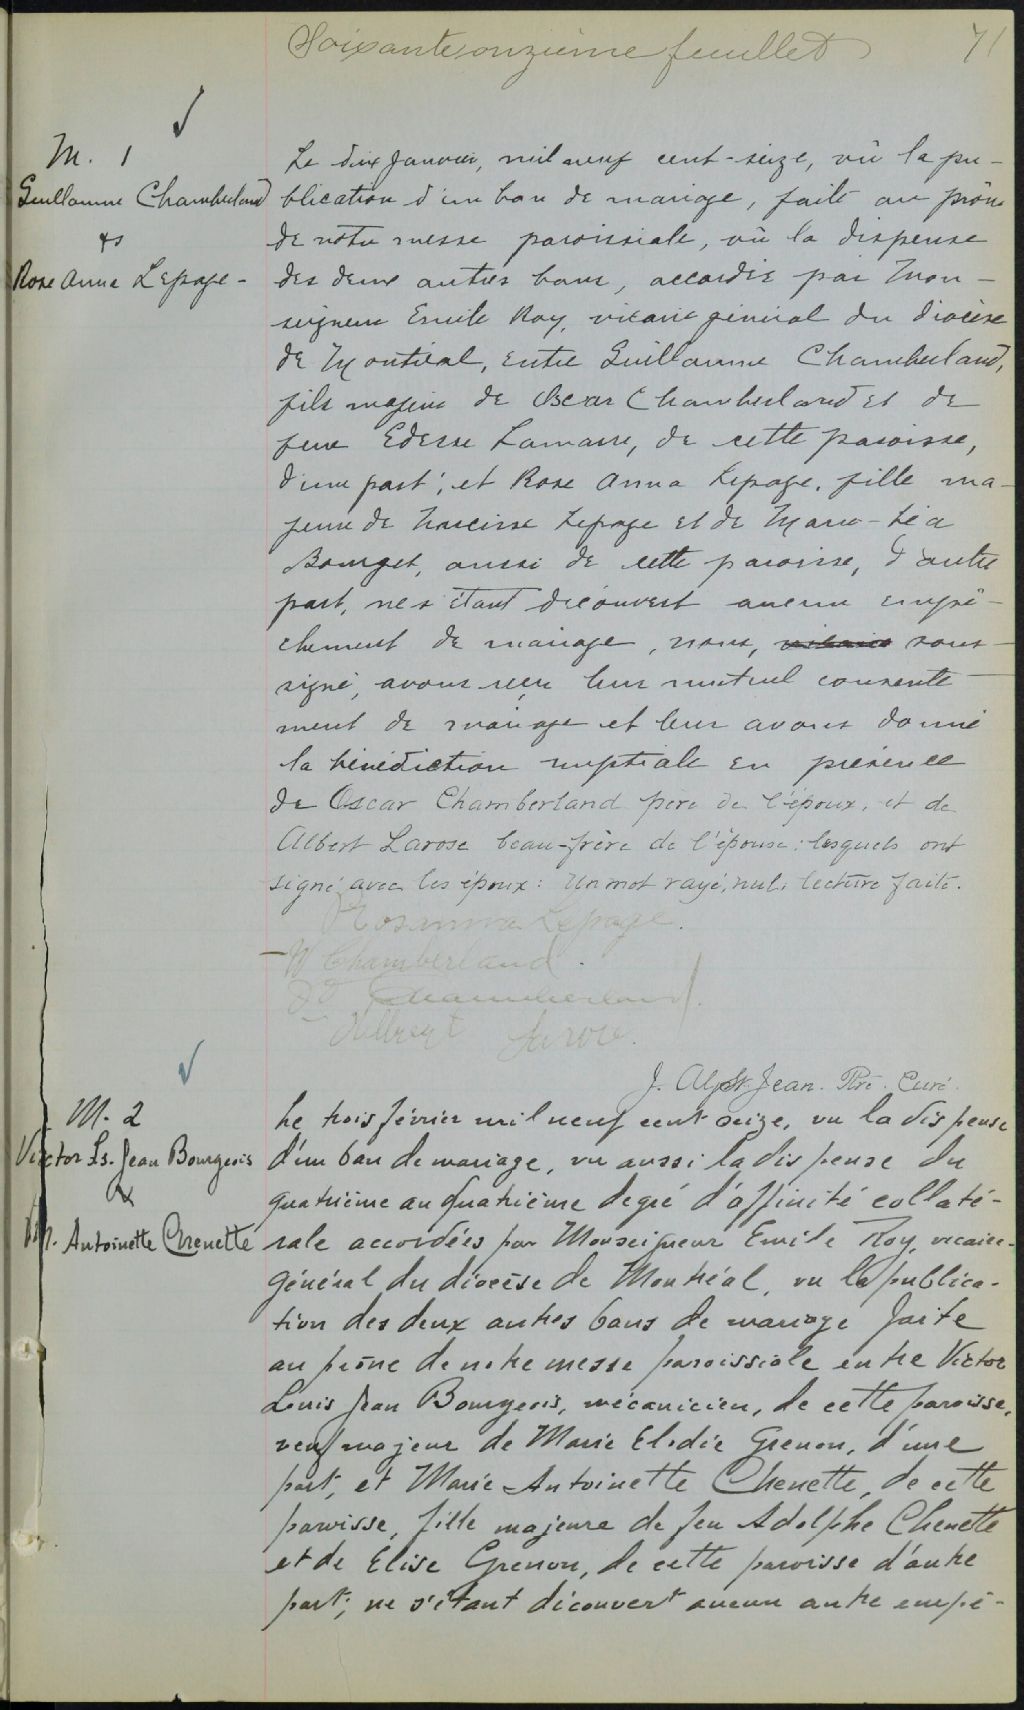 Soixante onzième feuillet 71
M. 1
Guillaume Chamberland
&
Rose Anna Lepage -
Le dix Janvier, mil neuf cent-seize, vû la pu-
blication d'un ban de mariage, faite au prône
de notre messe paroissiale, vû la dispense
des deux autres bans, accordée par Mon-
seigneur Emile Roy, vicaire général du diocèse
de Montréal, entre Guillaume Chamberland,
fils majeur de Oscar Chamberland et de
feue Edesse Lamarre, de cette paroisse,
d'une part; et Rose Anna Lepage, fille ma-
jeure de Narcisse Lepage et de Marie-Léa
Bourget, aussi de cette paroisse, d'autre
part, ne s'étant découvert aucun empê-
chement de mariage, nous, vicaire sous-
signé, avons reçu leur mutuel consente-
ment de mariage et leur avons donné
la bénédiction nuptiale en présence
de Oscar Chamberland père de l'époux, et de
Albert Larose beau-frère de l'épouse: lesquels ont
signé avec les époux: Un mot rayé, nul. lecture faite.
Rosanna Lepage.
W Chamberland.
Chamberland.
Albert Larose.
J. Alph. St. Jean. Ptre. Curé.
M. 2
Victor Ls. Jean Bourgeois
&
M. Antoinette Chenette
Le trois février mil neuf cent seize, vu la dispense
d'un ban de mariage, vu aussi la dispense du
quatrième au quatrième degré d'affinité collaté-
rale accordées par Monseigneur Emile Roy, vicaire-
général du diocèse de Montréal, vu la publica-
tion des deux autres bans de mariage faite
au prône de notre messe paroissiale entre Victor
Louis Jean Bourgeois, mécanicien, de cette paroisse,
veuf majeur de Marie Elodie Grenon, d'une
part, et Marie Antoinette Chenette, de cette
paroisse, fille majeure de feu Adolphe Chenette
et de Elise Grenon, de cette paroisse d'autre
part; ne s'étant découvert aucun autre empê-